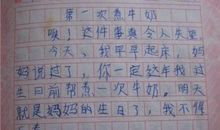 第一次煮牛奶
唉！这件事真令人失望。
今天，我早早起床，妈
妈说过了，你一定这年我过
生日前帮煮一次牛奶。明天
就是妈妈的生日了，我不得